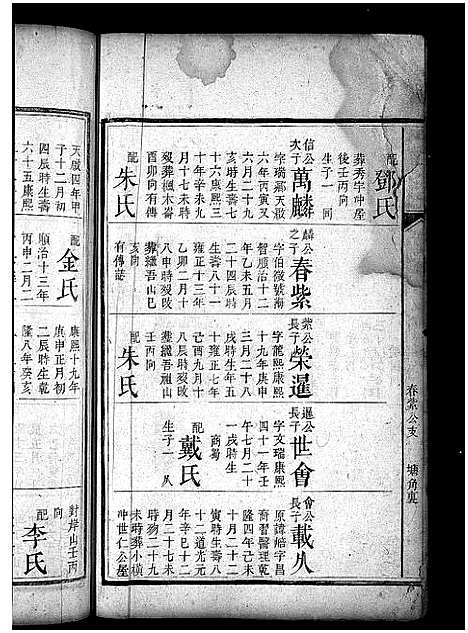 配
鄧氏
葬秀字冲屋
後壬丙向
生子一 同
信公
次子
萬麟
字瑞
六年丙寅又
六月二十九
亥時生壽五
十六康熙三
十年辛未九
月十七未時
歿葬楓木崙
酉卯向有傳
配
朱氏
麟公
之子
春紫
字伯徵號海
智順治十二
年乙未五月
二十四辰時
生壽六十一
雍正十三年
乙卯二月十
八申時歿
葬纖吾山巳
亥向
有傳誌
紫公
長子
榮暹
字龍熙康熙
十九年庚申
三月二十八
戌時生年五
十雍正七年
己酉九月十
八辰時歿
葬纖吾祖山
壬丙向
配
朱氏
暹公
長子
世會
字文瑞康熙
四十一年壬
午七月二十
一戌時生
商蜀
配
戴氏
生子一 㒰
會公
長子
載㒰
原諱皓字昌
齋習醫理乾
隆四年己未
十月二十二
寅時生壽八
十二道光元
年辛巳十二
月二十七未
時歿二十九
未時葬小橫
冲世仁公屋
天啟四年甲
子十二月初
四辰時生壽
六十五康熙
配
金氏
順治十三年
丙申二月二
康熙十九年
庚申正月初
二辰時生乾
隆八年癸亥
對岸山壬丙
向
配
李氏
春紫公支
塘角裏